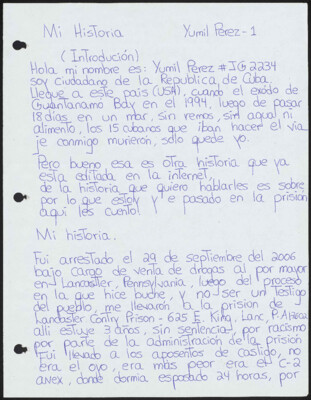 Mi Historia Yumil Pérez-1
(Introducción)
Hola mi nombre es: Yumil Pérez #JG2234
soy ciudadano de la Republica de Cuba.
Llegue a este país (USA), cuando el exódo de
Guantanamo Bay en el 1994, luego de pasar
18 días en un mar, sin remos, sin aqua ni
alimento, los 15 cubanos que iban hacer el via
je conmigo murierón, solo quede yo.
Pero bueno esa es otra historia que ya
esta editada en la internet,
de la historia que quiero hablarles es sobre
por lo que estoy y e pasado en la prisión
aquí les cuento!
Mi historia.
Fui arrestado el 29 de septiembre del 2006
bajo cargo de venta de drogas al por mayor
en Lancaster, Pennsylvania, luego del proceso
en la que hice buche, y no ser un testigo
del pueblo, me llevarón a la prision de
Lancaster Contry Prison - 625 E. King, Lanc, P.A
alli estuve 3 años, sin sentencia, por racismo
por parte de la administración de la prisión
Fui llevado a los aposentos de castigo, no
era el oyo, era más peor era el C-2
anex, donde dormia esposado 24 horas, por